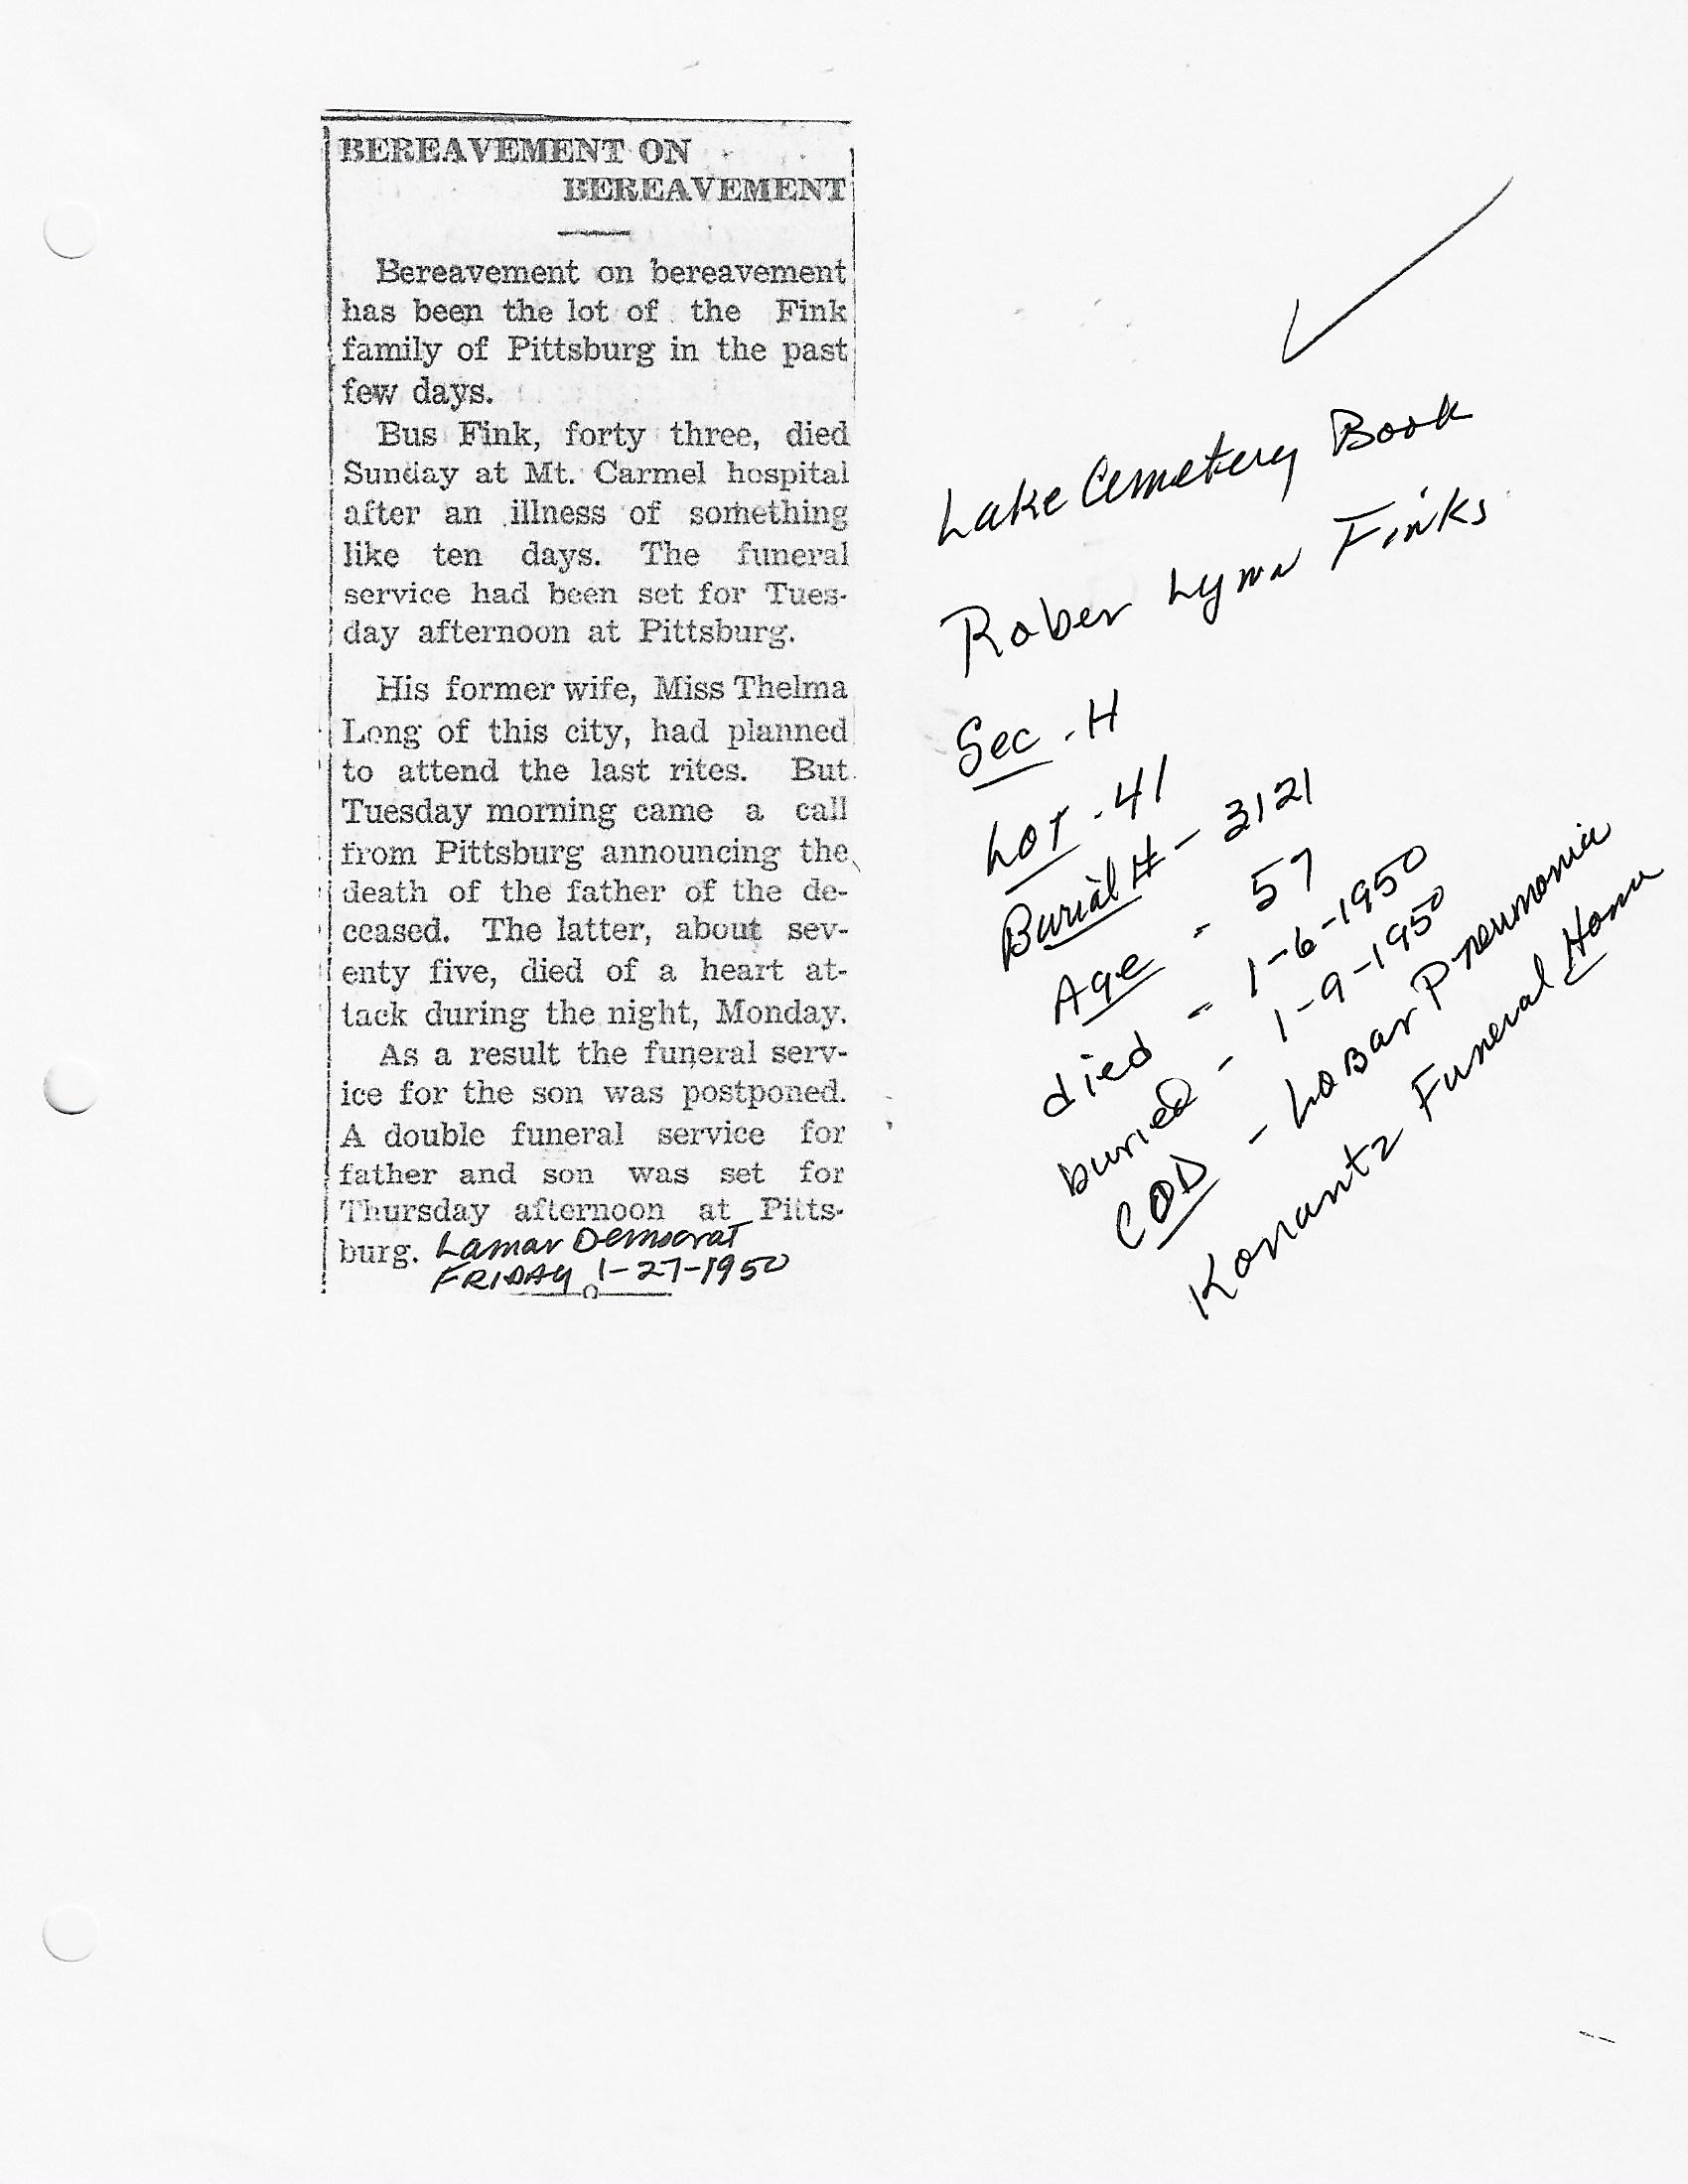 BEREAVEMENT ON
BEREAVEMENT
Bereavement on bereavement
has been the lot of the Fink
family of Pittsburg in the past
few days.
Bus Fink, forty three, died
Sunday at Mt. Carmel hospital
after an illness of something
like ten days. The funeral
service had been set for Tues-
day afternoon at Pittsburg.
His former wife, Miss Thelma
Long of this city, had planned
to attend the last rites. But
Tuesday morning came a call
from Pittsburg announcing the
death of the father of the de-
ceased. The latter, about sev-
enty five, died of a heart at-
tack during the night, Monday.
As a result the funeral serv-
ice for the son was postponed.
A double funeral service for
father and son was set for
Thursday afternoon at Pitts-
burg. Lamar Democrat
FRIDAY 1-27-1950
Lake Cemetery Book
Rober Lynn Finks
Sec - H
Lot - 41
Burial # - 3121
Age - 57
died - 1-6-1950
buried - 1-9-1950
COD - Lobar Pneumonia
Konantz Funeral Home